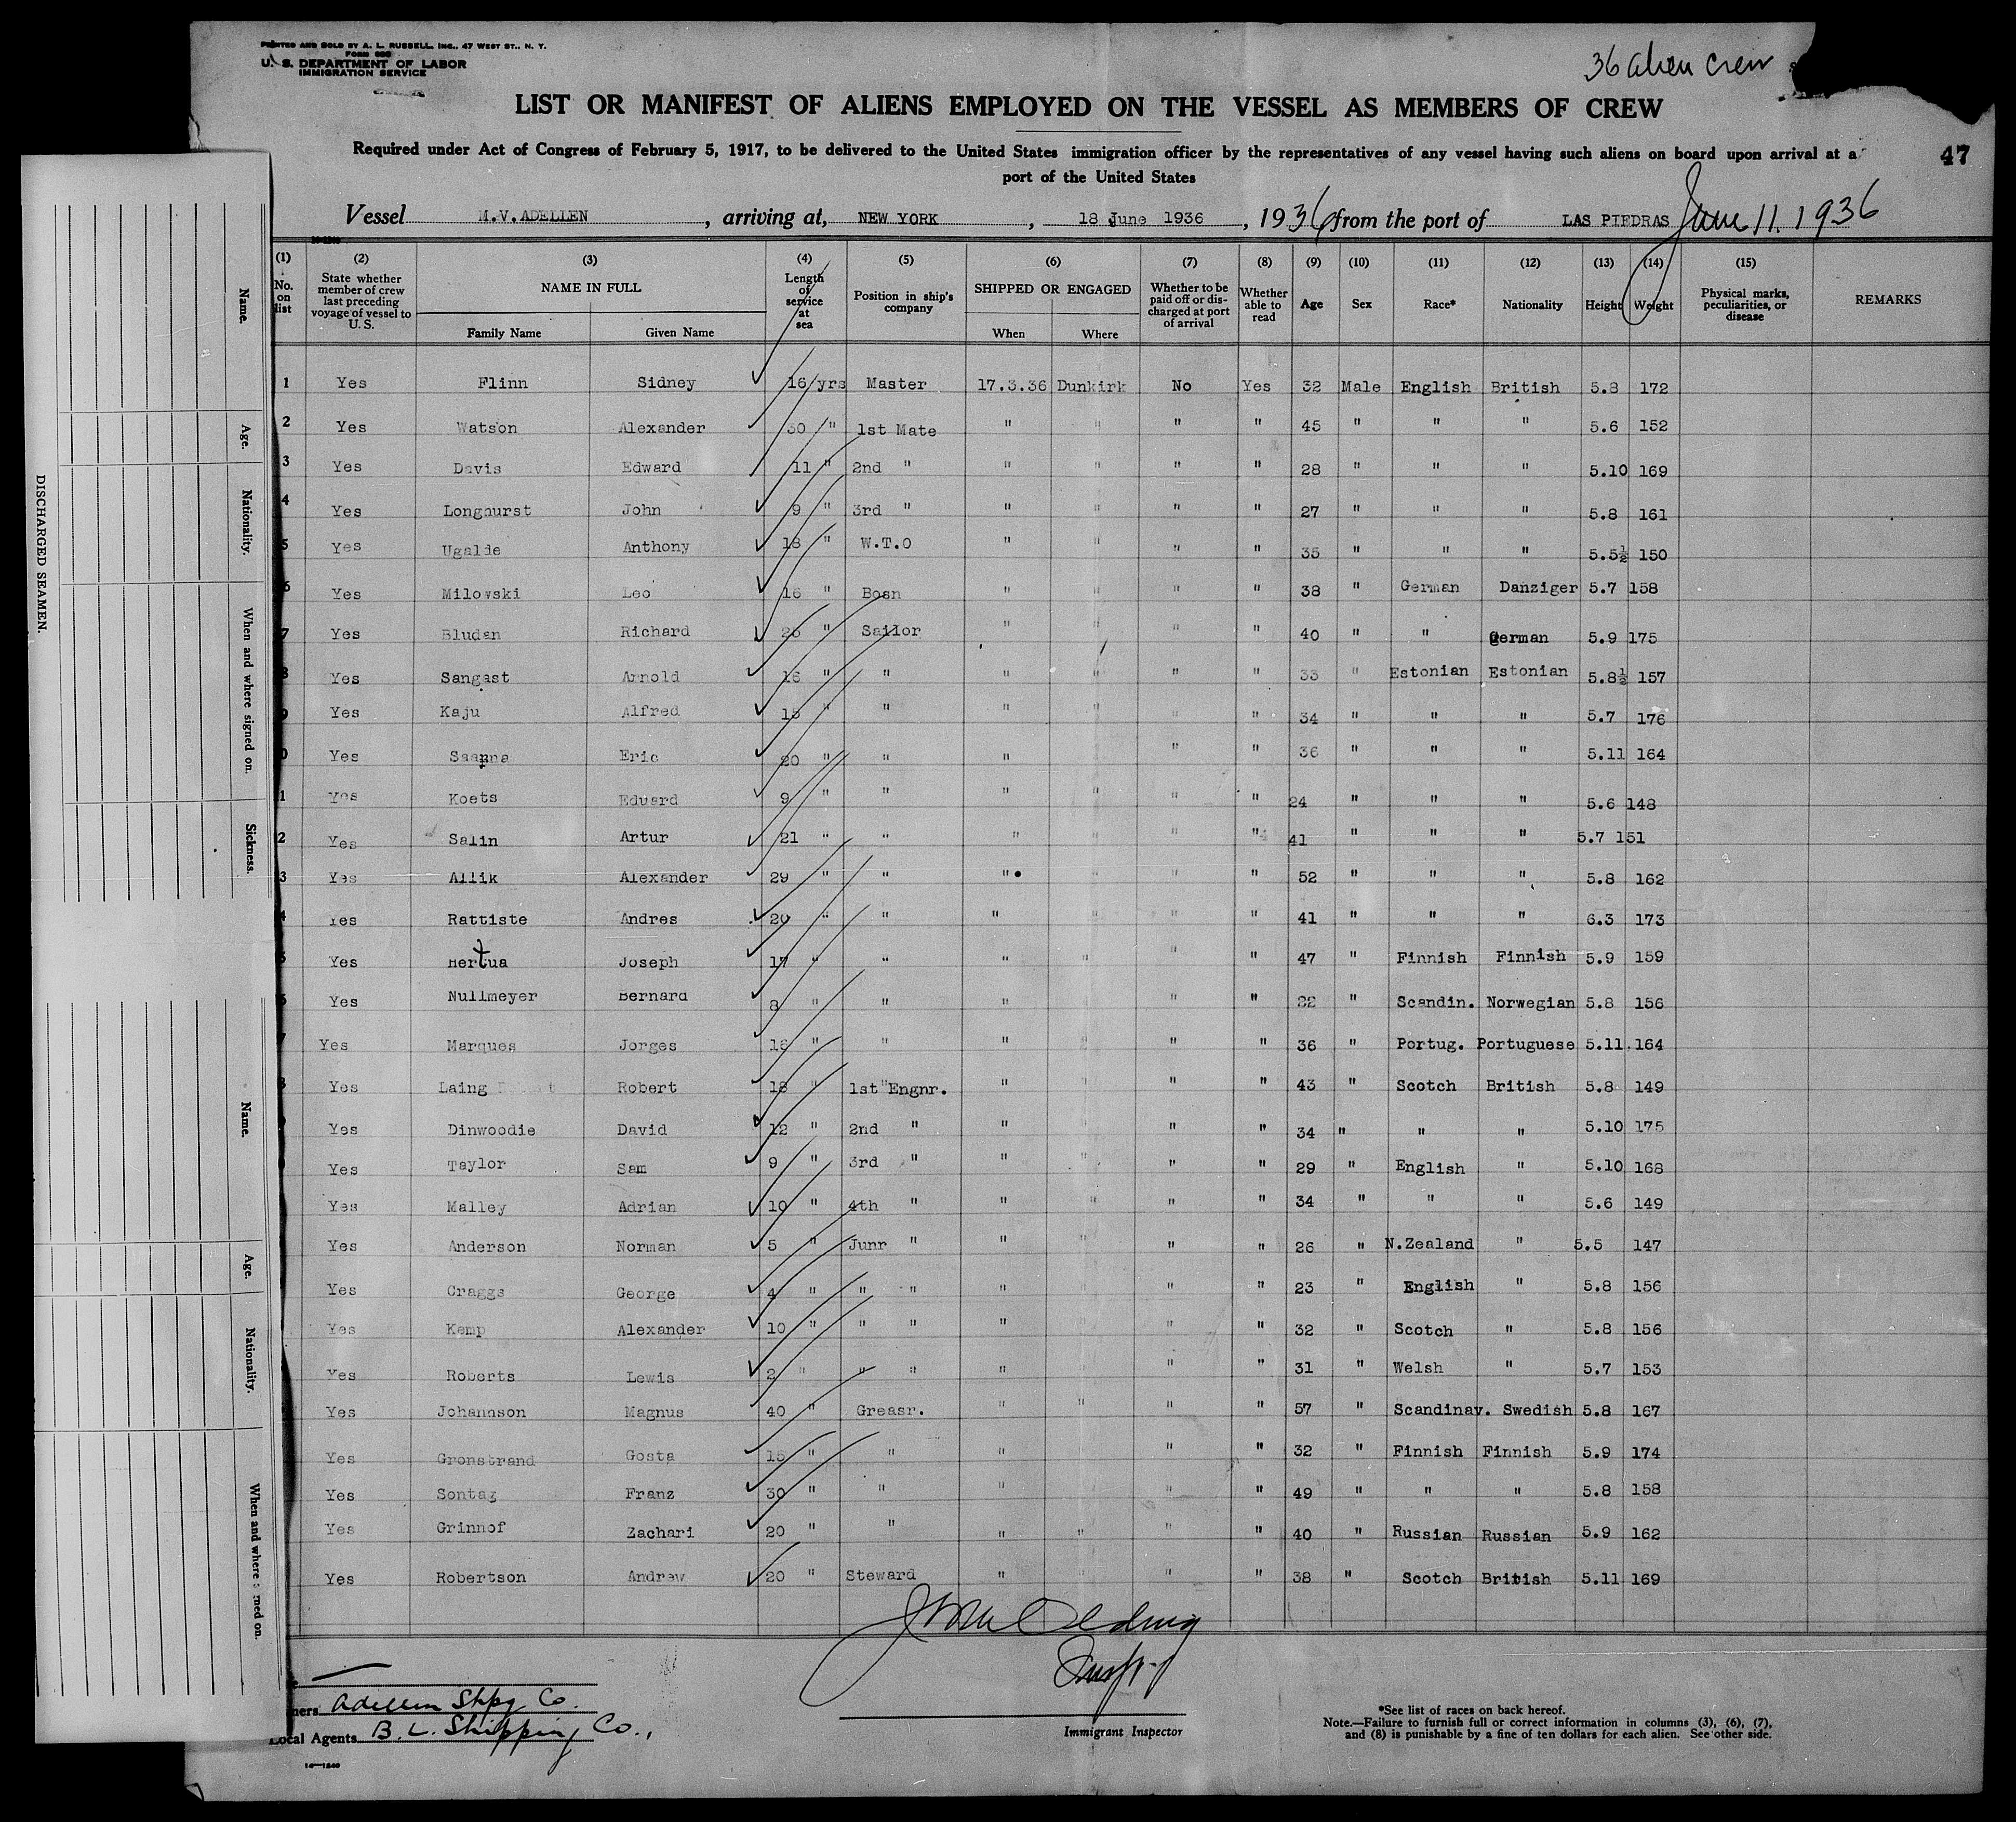 PRINTED AND SOLD BY A. L. RUSSELL, INC., 47 WEST ST., N. Y.
U. S. DEPARTMENT OF LABOR
IMMIGRATION SERVICE
36 alien crew
LIST OR MANIFEST OF ALIENS EMPLOYED ON THE VESSEL AS MEMBERS OF CREW
Required under Act of Congress of February 5, 1917, to be delivered to the United States immigration officer by the representatives of any vessel having such aliens on board upon arrival at a
port of the United States
47
Vessel M.V.ADELLEN, arriving at, NEW YORK, 18 June 1936, 1936 from the port of LAS PIEDRAS June 11. 1936
(1) No. on list (2) State whether member of crew last preceding voyage of vessel to U. S. (3) NAME IN FULL Family Name Given Name (4) Length of service at sea (5) Position in ship's company (6) SHIPPED OR ENGAGED When Where (7) Whether to be paid off or discharged at port of arrival (8) Whether able to read (9) Age (10) Sex (11) Race* (12) Nationality (13) Height (14) Weight (15) Physical marks, peculiarities, or disease REMARKS
1 Yes Flinn Sidney 16 yrs Master 17.3.36 Dunkirk No Yes 32 Male English British 5.8 172
2 Yes Watson Alexander 30 " 1st Mate " " " " 45 " " " 5.6 152
3 Yes Davis Edward 11 " 2nd " " " " " 28 " " " 5.10 169
4 Yes Longhurst John 9 " 3rd " " " " " 27 " " " 5.8 161
5 Yes Ugalde Anthony 18 " W.T.O " " " " 35 " " " 5.5½ 150
6 Yes Milowski Leo 16 " Bosn " " " " 38 " German Danziger 5.7 158
7 Yes Bludan Richard 26 " Sailor " " " " 40 " " German 5.9 175
8 Yes Sangast Arnold 16 " " " " " " 33 " Estonian Estonian 5.8½ 157
9 Yes Kaju Alfred 15 " " " " " " 34 " " " 5.7 176
0 Yes Eric 20 " " " " " 36 " " " 5.11 164
1 Yes Koets Eduard 9 " " " " " " 24 " " " 5.6 148
2 Yes Salin Artur 21 " " " " " " 41 " " " 5.7 151
3 Yes Allik Alexander 29 " " " " " " 52 " " " 5.8 162
4 Yes Rattiste Andres 20 " " " " " " 41 " " " 6.3 173
5 Yes Hertua Joseph 17 " " " " " " 47 " Finnish Finnish 5.9 159
6 Yes Nullmeyer Bernard 8 " " " " " " 22 " Scandin. Norwegian 5.8 156
7 Yes Marques Jorges 16 " " " " " " 36 " Portug. Portuguese 5.11 164
8 Yes Laing Robert 18 " 1st" Engnr. " " " " 43 " Scotch British 5.8 149
9 Yes Dinwoodie David 12 " 2nd " " " " " 34 " " " 5.10 175
Yes Taylor Sam 9 " 3rd " " " " " 29 " English " 5.10 168
Yes Malley Adrian 10 " 4th " " " " " 34 " " " 5.6 149
Yes Anderson Norman 5 " Junr " " " " " 26 " N.Zealand " 5.5 147
Yes Craggs George 4 " " " " " " " 23 " English " 5.8 156
Yes Kemp Alexander 10 " " " " " " " 32 " Scotch " 5.8 156
Yes Roberts Lewis 2 " " " " " " " 31 " Welsh " 5.7 153
Yes Johannson Magnus 40 " Greasr. " " " " 57 " Scandinav. Swedish 5.8 167
Yes Gronstrand Gosta 15 " " " " " " 32 " Finnish Finnish 5.9 174
Yes Sontag Franz 30 " " " " " " 49 " " " 5.8 158
Yes Grinnof Zachari 20 " " " " " " 40 " Russian Russian 5.9 162
Yes Robertson Andrew 20 " Steward " " " " 38 " Scotch British 5.11 169
Insp.
Immigrant Inspector
ners Adellen Shpg Co.
Local Agents B. L. Shipping Co.,
*See list of races on back hereof.
Note.—Failure to furnish full or correct information in columns (3), (6), (7),
and (8) is punishable by a fine of ten dollars for each alien. See other side.
DISCHARGED SEAMEN.
Name.
Age.
Nationality.
When and where signed on.
Sickness.
Name.
Age.
Nationality.
When and where signed on.